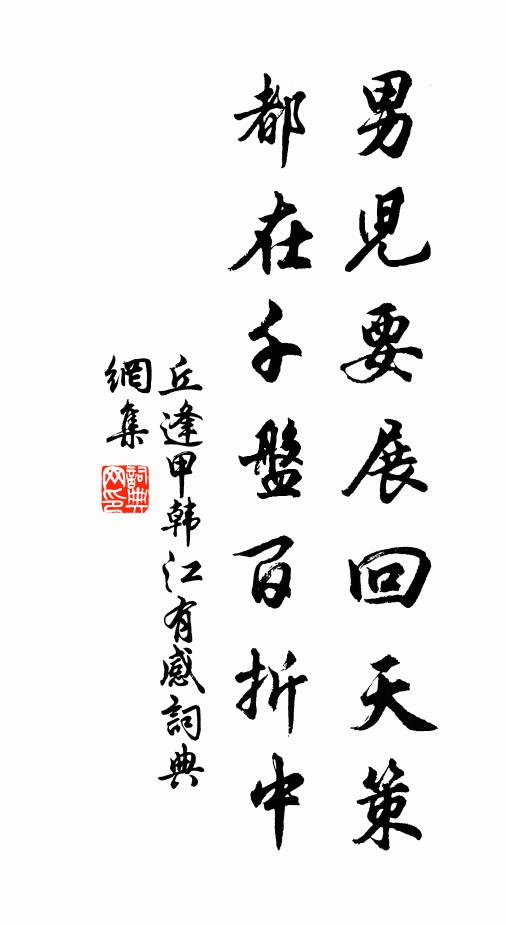 男兒要展回天策
都在千盤百折中
丘逢甲韩江有感詞典
網集
詞典
网印